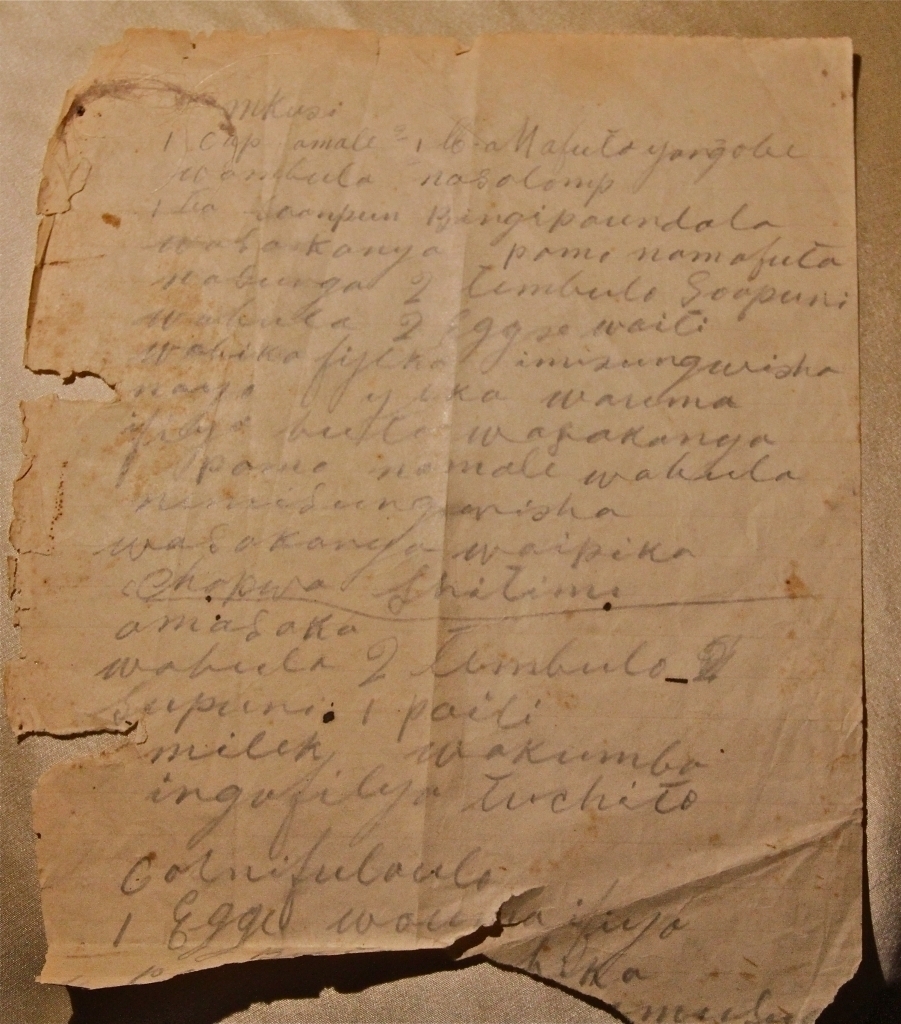 mkasi
1 Cup amale 1 lb a Mafuta yangobe
wambula nasalomp
1 tea saanpun Bingipaundala
wasakanya pamo namafuta
nasunga 2 tembulo Soopuni
wabula 2 Eggse waiti
wabika fijlka imisungwisha
naajo yika wauma
ifilyo bwilo wasakanya
pamo namale wabula
nimisungwisha
wasakanya waipika
Chapwa Shitimi
amasaka
wabula 2 tembulo
Supuni 1 paiti
milek wakumba
ingafilya tuchito
Colnifulaulo
1 Egge wauma ifilyo
bika